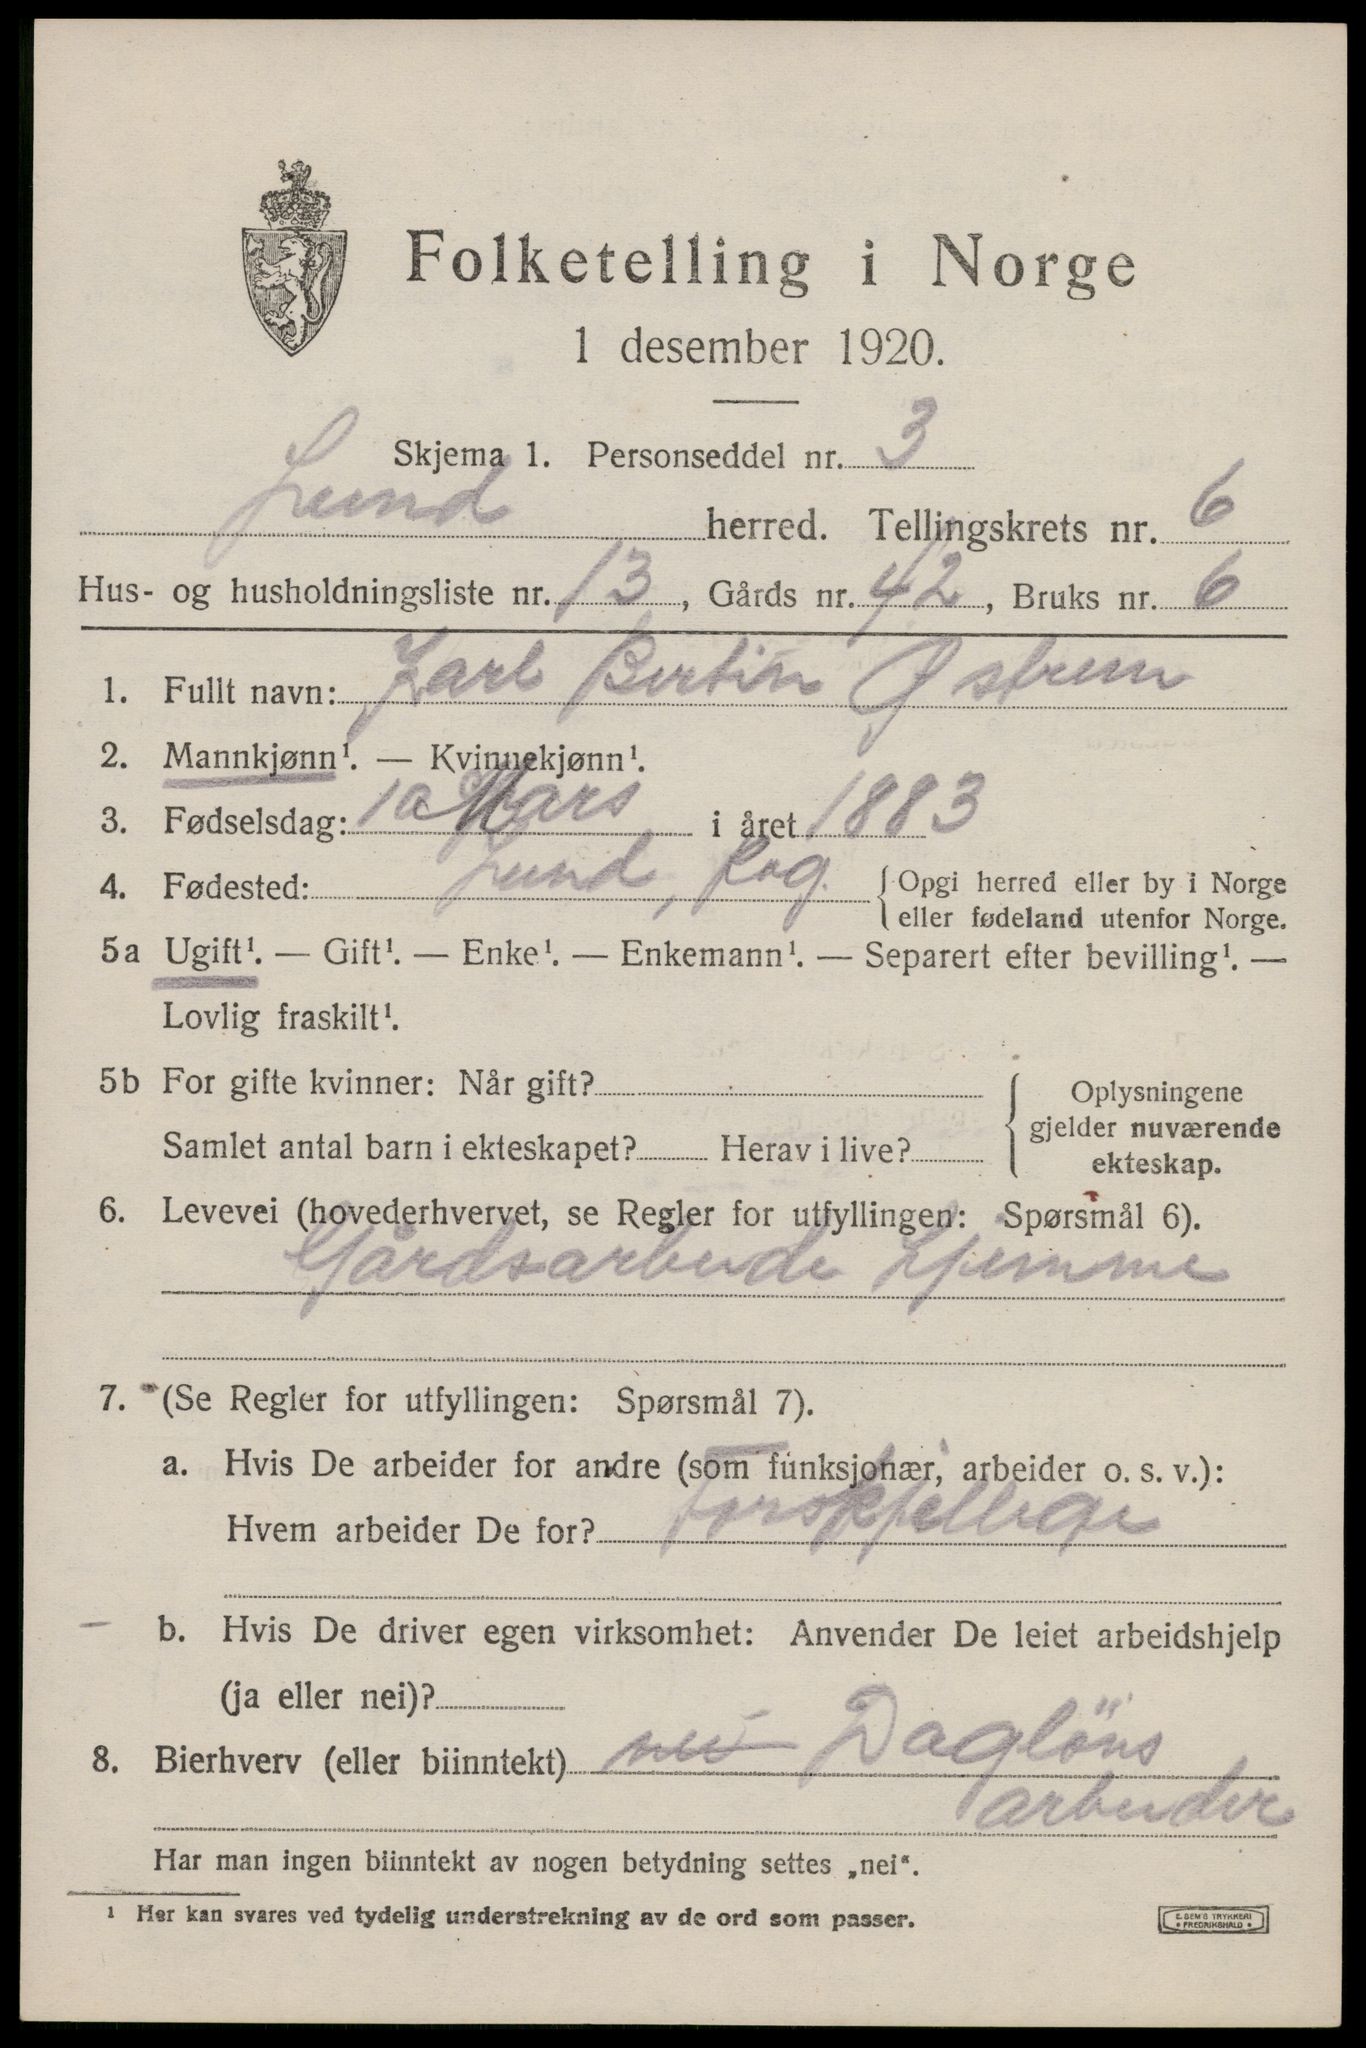 Folketelling i Norge
1 desember 1920.
Skjema 1. Personseddel nr. 3
Lund herred. Tellingskrets nr. 6
Hus- og husholdningsliste nr. 13, Gårds nr. 42, Bruks nr. 6
1. Fullt navn: Karl Bertin Østrem
2. Mannkjønn¹. — Kvinnekjønn¹.
3. Fødselsdag: 10 Mars i året 1883
4. Fødested: Lund, Rog. { Opgi herred eller by i Norge
eller fødeland utenfor Norge.
5a Ugift¹. — Gift¹. — Enke¹. — Enkemann¹. — Separert efter bevilling¹. —
Lovlig fraskilt¹.
5b For gifte kvinner: Når gift?
Samlet antal barn i ekteskapet? Herav i live?
{ Oplysningene
gjelder nuværende
ekteskap.
6. Levevei (hovederhvervet, se Regler for utfyllingen: Spørsmål 6).
Gårdsarbeide hjemme
7. (Se Regler for utfyllingen: Spørsmål 7).
a. Hvis De arbeider for andre (som funksjonær, arbeider o. s. v.):
Hvem arbeider De for? forskjellige
b. Hvis De driver egen virksomhet: Anvender De leiet arbeidshjelp
(ja eller nei)?
8. Bierhverv (eller biinntekt) nei Daglöns
arbeider
Har man ingen biinntekt av nogen betydning settes „nei“.
¹ Her kan svares ved tydelig understrekning av de ord som passer.
E. SEM'S TRYKKERI
• FREDRIKSHALD •